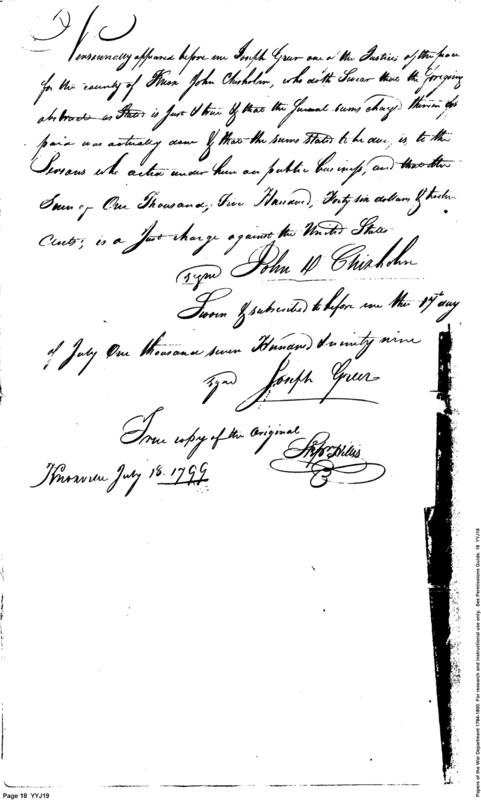 Personally appeared before me Joseph Greer one of the Justices of the peace
for the county of Knox John Chisholm, who doth Swear that the foregoing
abstract as Stated is Just & true & that the several sums charged therein as
paid was actually done & that the sums stated to be due, is to the
Persons who acted under him on public business, and that the
Sum of One Thousand, Five Hundred, Forty six dollars &
Cents; is a Just charge against the United States
signd John D Chisholm
Sworn & subscribed to before me this 17th day
of July One thousand seven Hundred & ninety nine
signd Joseph Greer
True copy of the Original
Knoxville July 18. 1799
Page 18 YYJ19
Papers of the War Department 1784-1800. For research and instructional use only. See Permissions Guide. 18 YYJ19